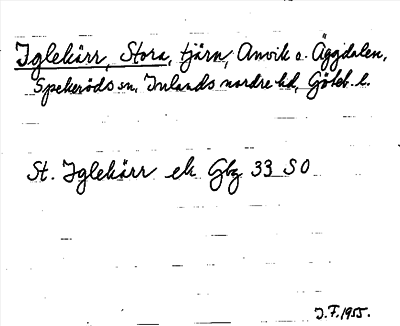 Iglekärr, Stora, tjärn, Anvik o. Äggdalen,
Spekeröds sn, Inlands nordre hd, Göteb. l.
St. Iglekärr ek Gbg 33 SO
J.F. 1955.